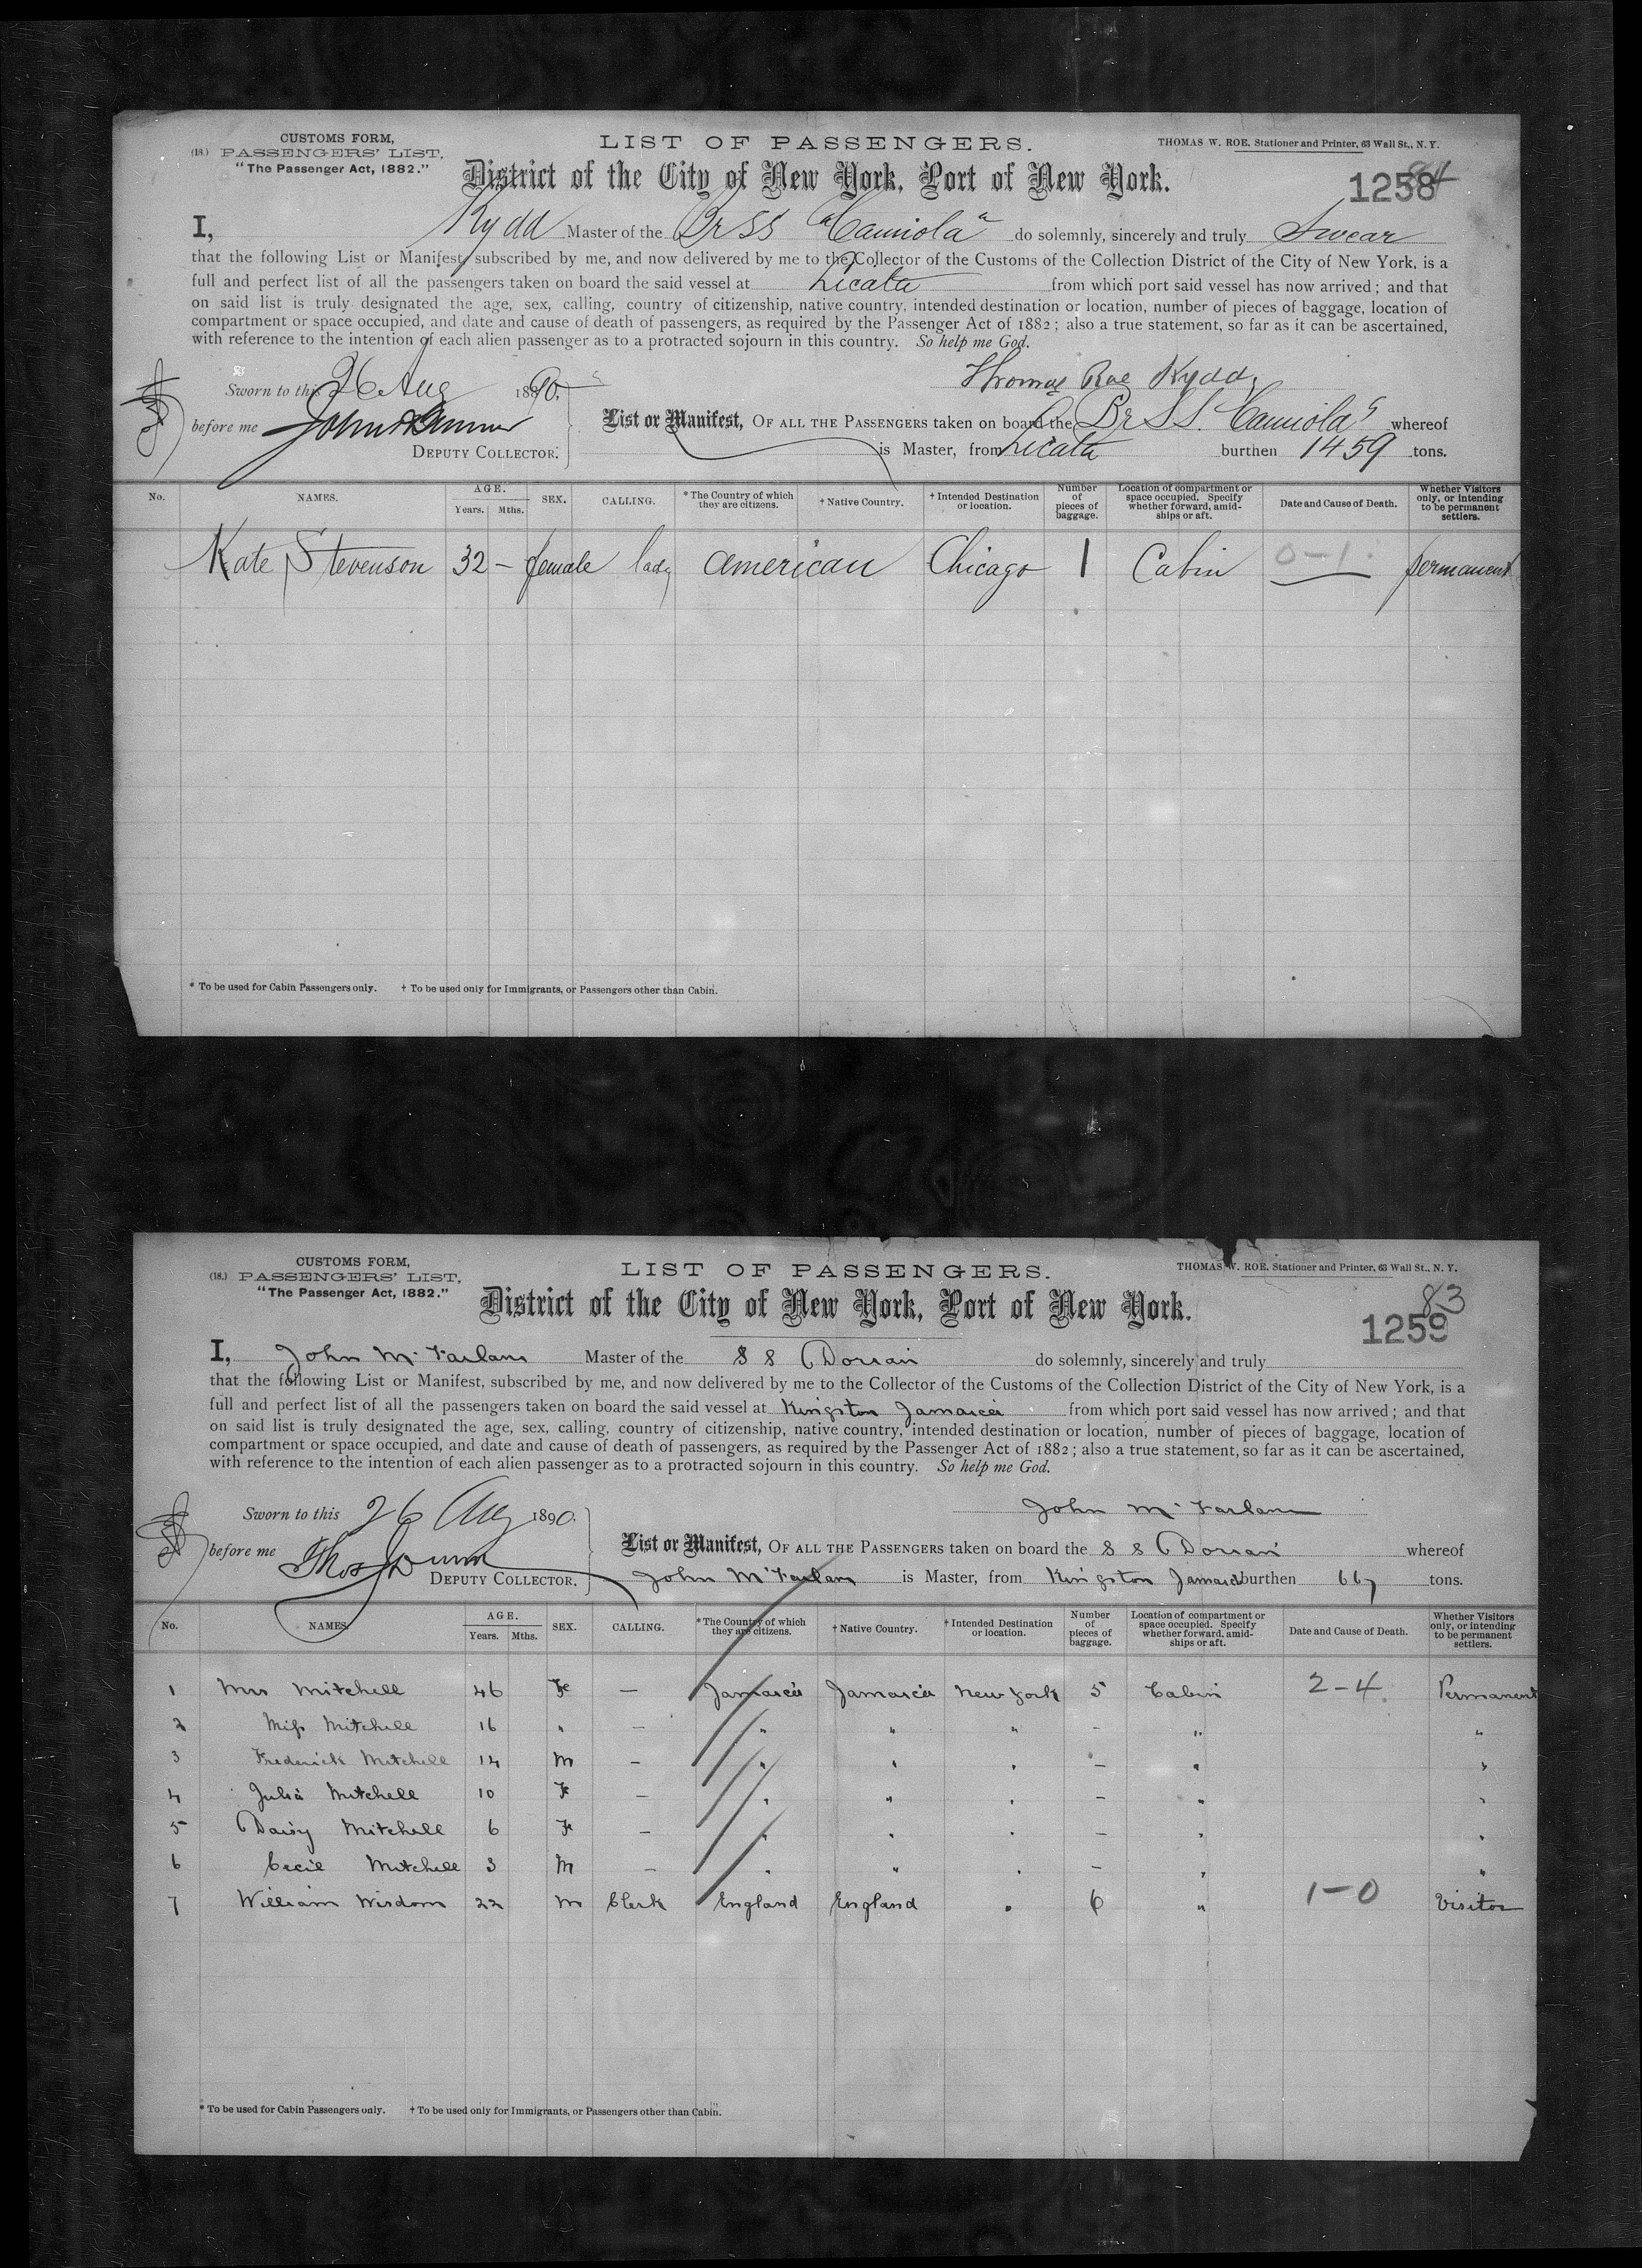 CUSTOMS FORM,
(18.) PASSENGERS' LIST,
"The Passenger Act, 1882."
LIST OF PASSENGERS.
THOMAS W. ROE. Stationer and Printer, 63 Wall St., N. Y.
District of the City of New York, Port of New York.
84
1258
I, Kydd Master of the Br SS "Camiola" do solemnly, sincerely and truly Swear
that the following List or Manifest, subscribed by me, and now delivered by me to the Collector of the Customs of the Collection District of the City of New York, is a
full and perfect list of all the passengers taken on board the said vessel at Licata from which port said vessel has now arrived; and that
on said list is truly designated the age, sex, calling, country of citizenship, native country, intended destination or location, number of pieces of baggage, location of
compartment or space occupied, and date and cause of death of passengers, as required by the Passenger Act of 1882; also a true statement, so far as it can be ascertained,
with reference to the intention of each alien passenger as to a protracted sojourn in this country. So help me God.
Thomas Rae Kydd
Sworn to this 26 Aug 1890.
before me
DEPUTY COLLECTOR.
List or Manifest, OF ALL THE PASSENGERS taken on board the Br S.S. "Camiola" whereof
is Master, from Licata burthen 1459 tons.
No. NAMES. AGE. Years. Mths. SEX. CALLING. * The Country of which they are citizens. † Native Country. † Intended Destination or location. Number of pieces of baggage. Location of compartment or space occupied. Specify whether forward, amidships or aft. Date and Cause of Death. Whether Visitors only, or intending to be permanent settlers.
Kate Stevenson 32 – female lady american Chicago 1 Cabin 0–1 permanent
* To be used for Cabin Passengers only. † To be used only for Immigrants, or Passengers other than Cabin.
CUSTOMS FORM,
(18.) PASSENGERS' LIST,
"The Passenger Act, 1882."
LIST OF PASSENGERS.
THOMAS W. ROE. Stationer and Printer, 63 Wall St., N. Y.
District of the City of New York, Port of New York.
83
1259
I, John McFarlane Master of the S S Dorian do solemnly, sincerely and truly
that the following List or Manifest, subscribed by me, and now delivered by me to the Collector of the Customs of the Collection District of the City of New York, is a
full and perfect list of all the passengers taken on board the said vessel at Kingston Jamaica from which port said vessel has now arrived; and that
on said list is truly designated the age, sex, calling, country of citizenship, native country, intended destination or location, number of pieces of baggage, location of
compartment or space occupied, and date and cause of death of passengers, as required by the Passenger Act of 1882; also a true statement, so far as it can be ascertained,
with reference to the intention of each alien passenger as to a protracted sojourn in this country. So help me God.
John McFarlane
Sworn to this 26 Aug 1890.
before me
DEPUTY COLLECTOR.
List or Manifest, OF ALL THE PASSENGERS taken on board the S S Dorian whereof
John McFarlane is Master, from Kingston Jamaica burthen 667 tons.
No. NAMES. AGE. Years. Mths. SEX. CALLING. * The Country of which they are citizens. † Native Country. † Intended Destination or location. Number of pieces of baggage. Location of compartment or space occupied. Specify whether forward, amidships or aft. Date and Cause of Death. Whether Visitors only, or intending to be permanent settlers.
1 Mrs Mitchell 46 Fe — Jamaica Jamaica New York 5 Cabin 2–4 Permanent
2 Miss Mitchell 16 " — " " " – " "
3 Frederick Mitchell 14 M — " " " – " "
4 Julia Mitchell 10 F — " " " – " "
5 Daisy Mitchell 6 F — " " " – " "
6 Cecil Mitchell 3 M — " " " – " "
7 William Wisdom 22 M Clerk England England " 6 " 1–0 Visitor
* To be used for Cabin Passengers only. † To be used only for Immigrants, or Passengers other than Cabin.